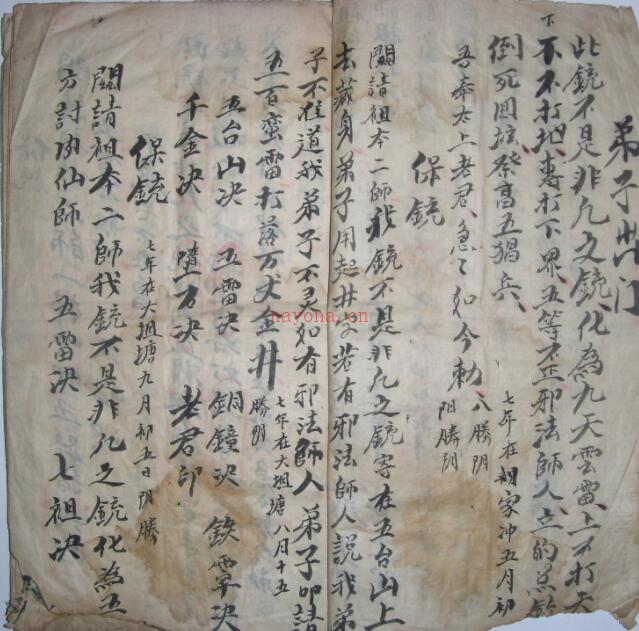 弟子出门
此铳不是非凡之铳化為九天雲雷上不打天
下不打地專打下界五等不正邪法師人立的
倒死回壇祭高五猖兵
七年在胡家冲五月初
吾奉太上老君急々如今勅
八勝阴
阳勝阴
保铳
闗請祖本二師我铳不是非凡之铳寄在五台山上
去藏身弟子用起井安若有邪法師人說我弟
子不准道我弟子不灵如有邪法師人弟子叩請
五百蛮雷打落万丈金井
七年在大坦塘八月十五
勝阴
五台山决 五雷决 銅鐘决 鉄
千金决 隨万决 老君印
保铳
七年在大坦塘九月初五日阴勝
闗請祖本二師我铳不是非凡之铳化為五
方討仙師 五雷决 七祖决
nayona.cn